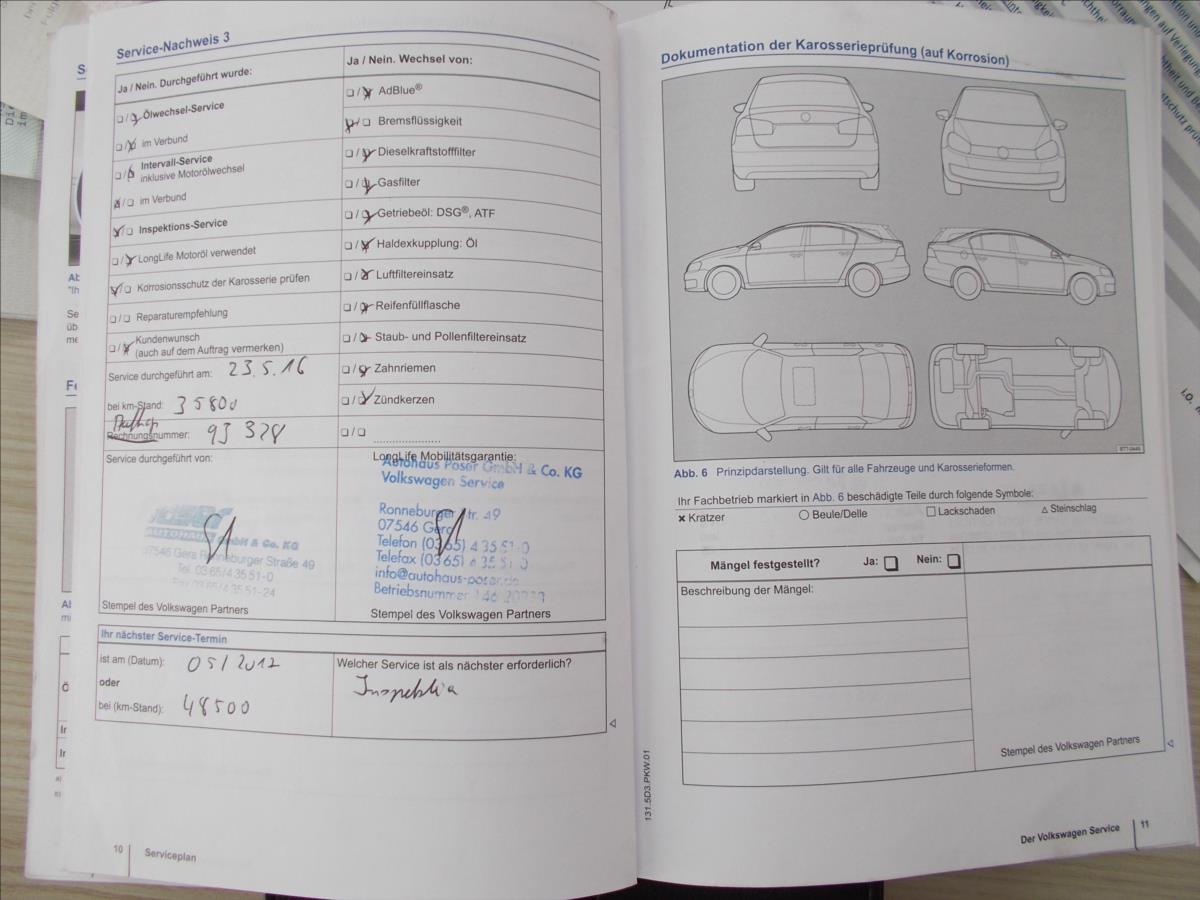 Service-Nachweis 3
Ja / Nein. Durchgeführt wurde:
Ölwechsel-Service
im Verbund
Intervall-Service
inklusive Motorölwechsel
im Verbund
Inspektions-Service
LongLife Motoröl verwendet
Korrosionsschutz der Karosserie prüfen
Reparaturempfehlung
Kundenwunsch
(auch auf dem Auftrag vermerken)
Service durchgeführt am: 23.5.16
bei km-Stand: 35800
Rechnungsnummer: 93 328
Service durchgeführt von:
AUTOHAUS GmbH & Co. KG
07546 Gera Ronneburger Straße 49
Tel. 03 65/4 35 51-0
Fax 03 65/4 35 51-24
Stempel des Volkswagen Partners
Ja / Nein. Wechsel von:
AdBlue®
Bremsflüssigkeit
Dieselkraftstofffilter
Gasfilter
Getriebeöl: DSG®, ATF
Haldexkupplung: Öl
Luftfiltereinsatz
Reifenfüllflasche
Staub- und Pollenfiltereinsatz
Zahnriemen
Zündkerzen
LongLife Mobilitätsgarantie:
Autohaus Poser GmbH & Co. KG
Volkswagen Service
Ronneburger Str. 49
07546 Gera
Telefon (03 65) 4 35 51-0
Telefax (03 65) 4 35 51-0
info@autohaus-poser.de
Betriebsnummer
Stempel des Volkswagen Partners
Ihr nächster Service-Termin
ist am (Datum): 05/2017
oder
bei (km-Stand): 48500
Welcher Service ist als nächster erforderlich?
Inspektion
10 Serviceplan
Dokumentation der Karosserieprüfung (auf Korrosion)
Abb. 6 Prinzipdarstellung. Gilt für alle Fahrzeuge und Karosserieformen.
Ihr Fachbetrieb markiert in Abb. 6 beschädigte Teile durch folgende Symbole:
Kratzer Beule/Delle Lackschaden Steinschlag
Mängel festgestellt? Ja: Nein:
Beschreibung der Mängel:
Stempel des Volkswagen Partners
131.5D3.PKW.01
Der Volkswagen Service 11